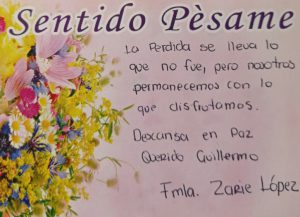 Sentido Pèsame
La Perdida se lleva lo
que no fue, pero nosotros
permanecemos con lo
que disfrutamos.
Descansa en Paz
Querido Guillermo
Fmla. Zarie López